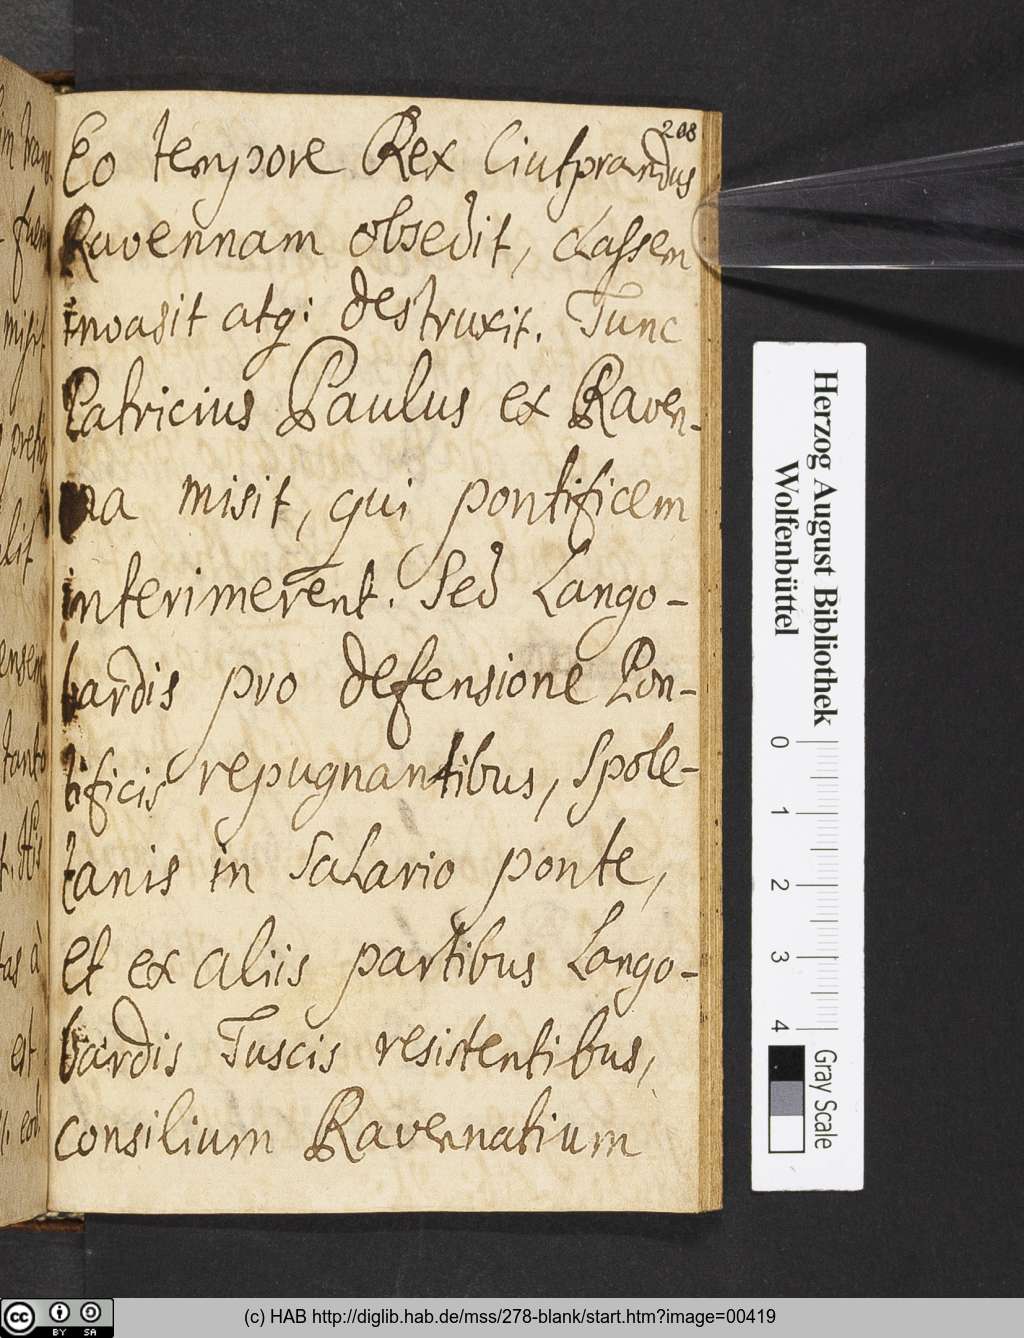 208
Eo tempore Rex Liutprandus
Ravennam obsedit, classem
invasit atq: destruxit. Tunc
Patricius Paulus ex Raven-
na misit, qui pontificem
interimerent. Sed Lango-
bardis pro defensione Pon-
tificis repugnantibus, Spole-
tanis in Salario ponte,
et ex aliis partibus Lango-
bardis Tuscis resistentibus,
consilium Ravennatium
Herzog August Bibliothek
Wolfenbüttel
0 1 2 3 4
Gray Scale
cc BY SA
(c) HAB http://diglib.hab.de/mss/278-blank/start.htm?image=00419